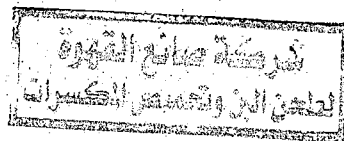 شركة صانع القهوة
لطحن البن وتحميص المكسرات